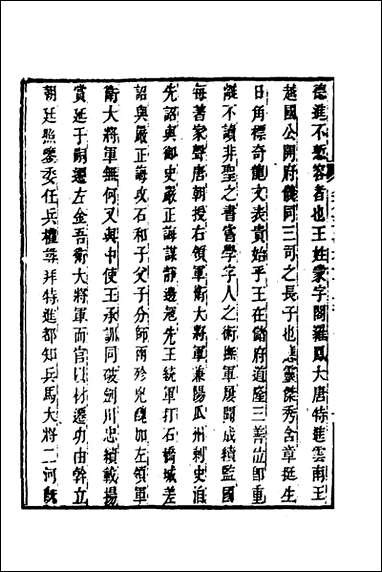 德進不慙容者也王姓蒙字閣羅鳳大唐特進雲南王
越國公開府儀同三司之長子也應靈傑秀含章挺生
日角標奇龍文表貴始乎王在儲府道隆三善位即重
離不讀非聖之書嘗學字人之術撫軍屢聞成績監國
每著家聲唐朝授右領軍衛大將軍兼陽瓜州刺史洎
先詔與御史嚴正誨謀靜邊冦先王統軍打石橋城差
詔與嚴正誨攻石和子父子分師兩殄兇醜加左領軍
衛大將軍無何又與中使王承訓同破劍川忠績載揚
賞延于嗣遷左金吾衛大將軍而官以材遷功由幹立
朝廷照鑒委任兵權尋拜特進都知兵馬大將二河既